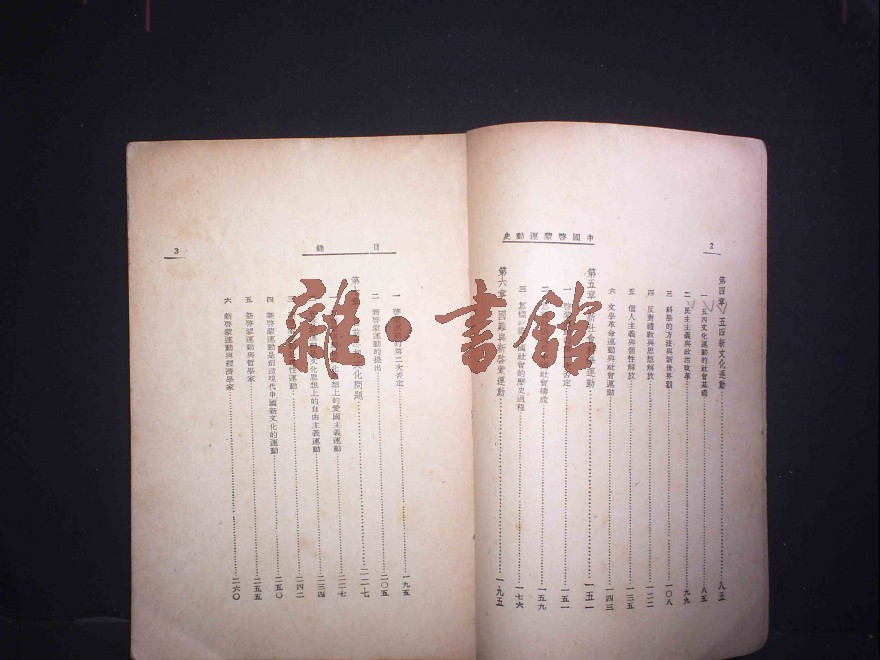 2
中國啓蒙運動史
第四章 五四新文化運動……八三
一 五四文化運動的社會基礎……八五
二 民主主義與政治改革……九九
三 科學的方法與新世界觀……一〇八
四 反對禮教與思想解放……一二二
五 個人主義與個性解放……一三五
六 文學革命運動與社會運動……一四三
第五章 新社會 運動……一五一
一 啓蒙 定……一五一
二 社會構成……一五九
三 怎樣 國社會的歷史過程……一七六
第六章 國難與新啓蒙運動……一九五
目錄
3
一 啓蒙運動的第二次否定……一九五
二 新啓蒙運動的提出……二〇五
第 化問題……二二七
一 想上的愛國主義運動……二二七
文化思想上的自由主義運動……二三四
三 性運動……二四二
四 新啓蒙運動是創造現代中國新文化的運動……二五〇
五 新啓蒙運動與哲學家……二五五
六 新啓蒙運動與經濟學家……二六〇
雜·書館